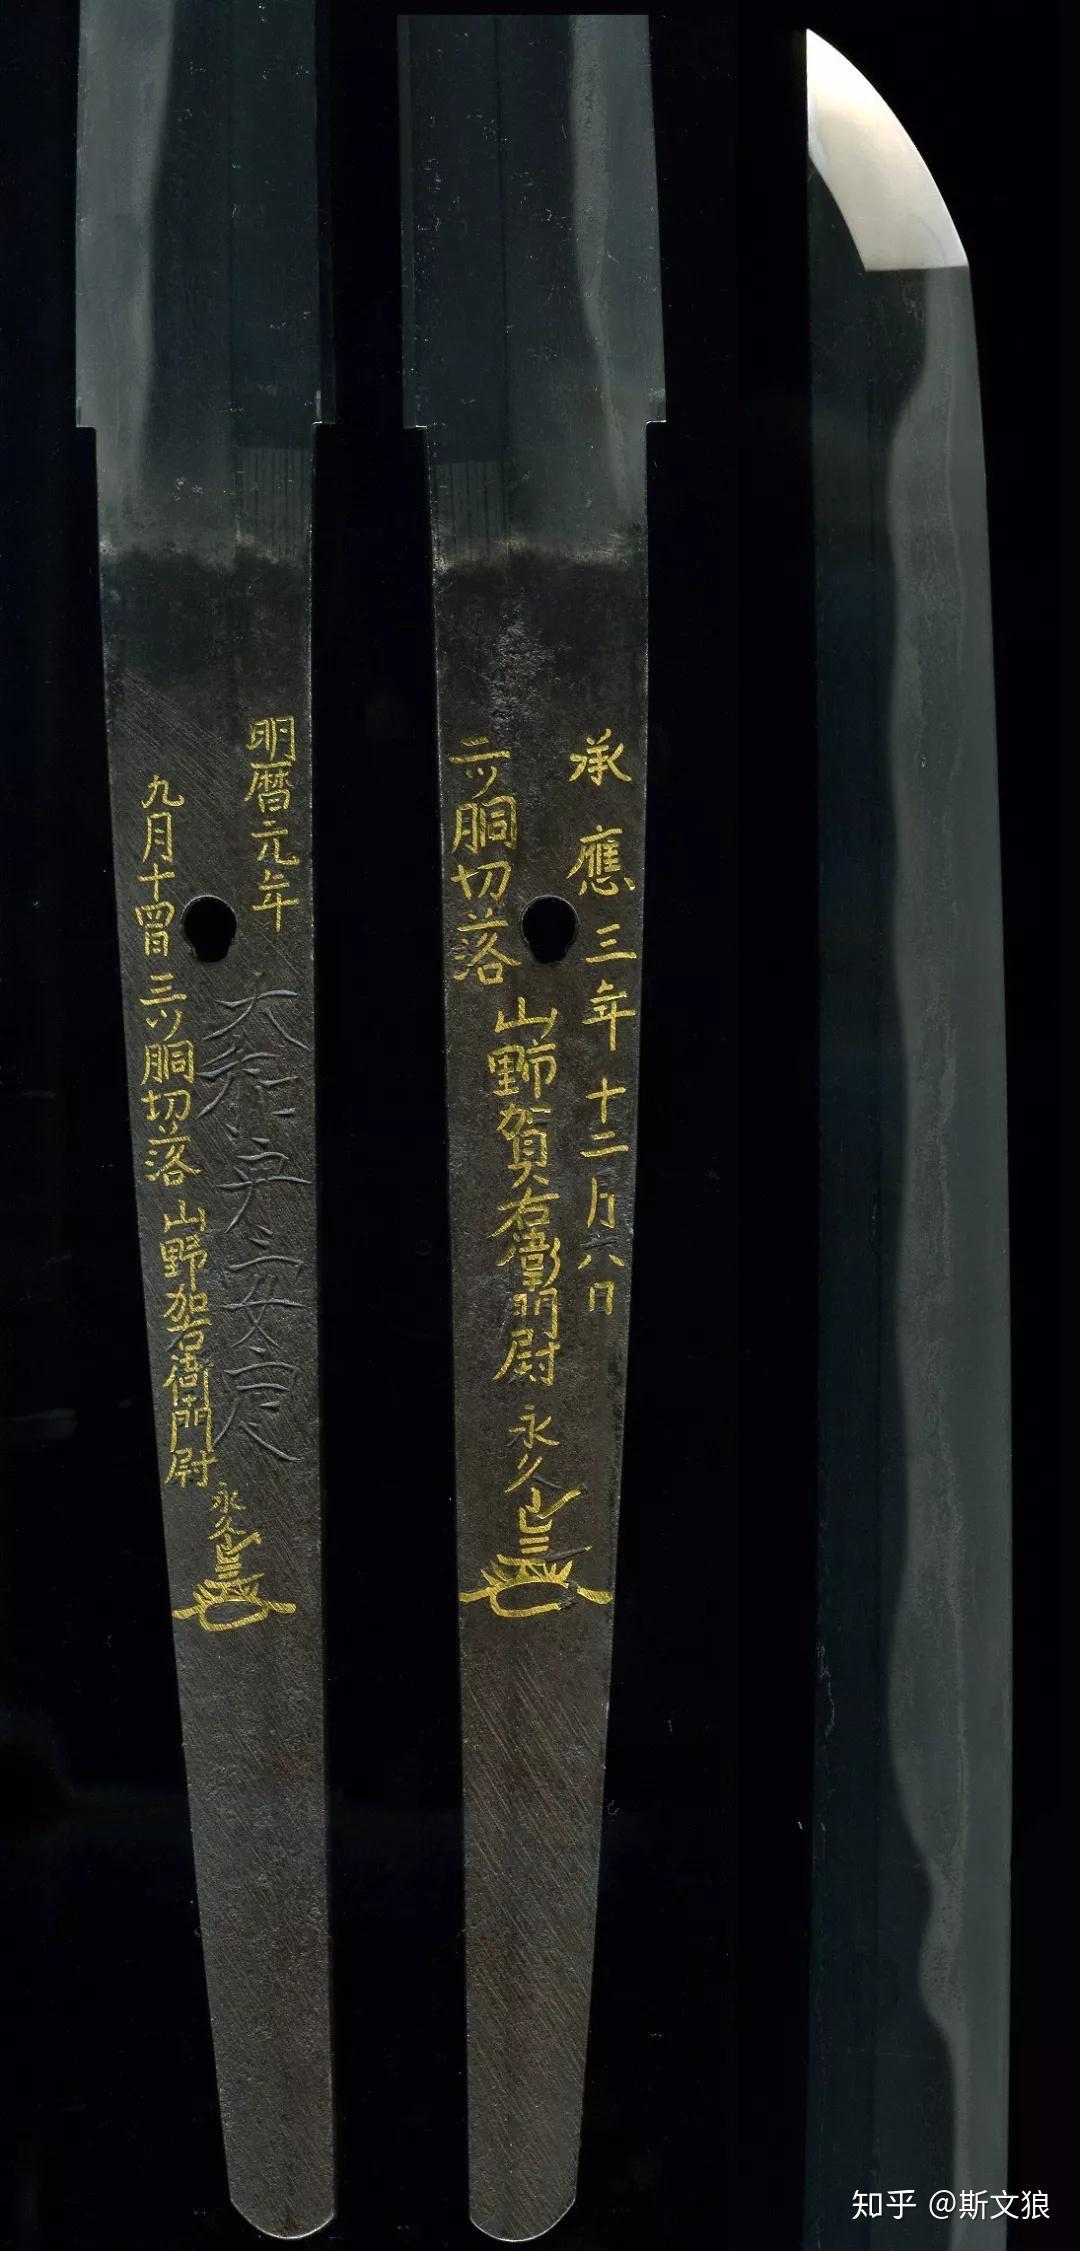 明暦元年
大和守安定
九月十四日 三ツ胴切落 山野加右衛門尉 永久
承應三年十二月八日
二ツ胴切落
山野賀右衛門尉 永久
知乎 @斯文狼